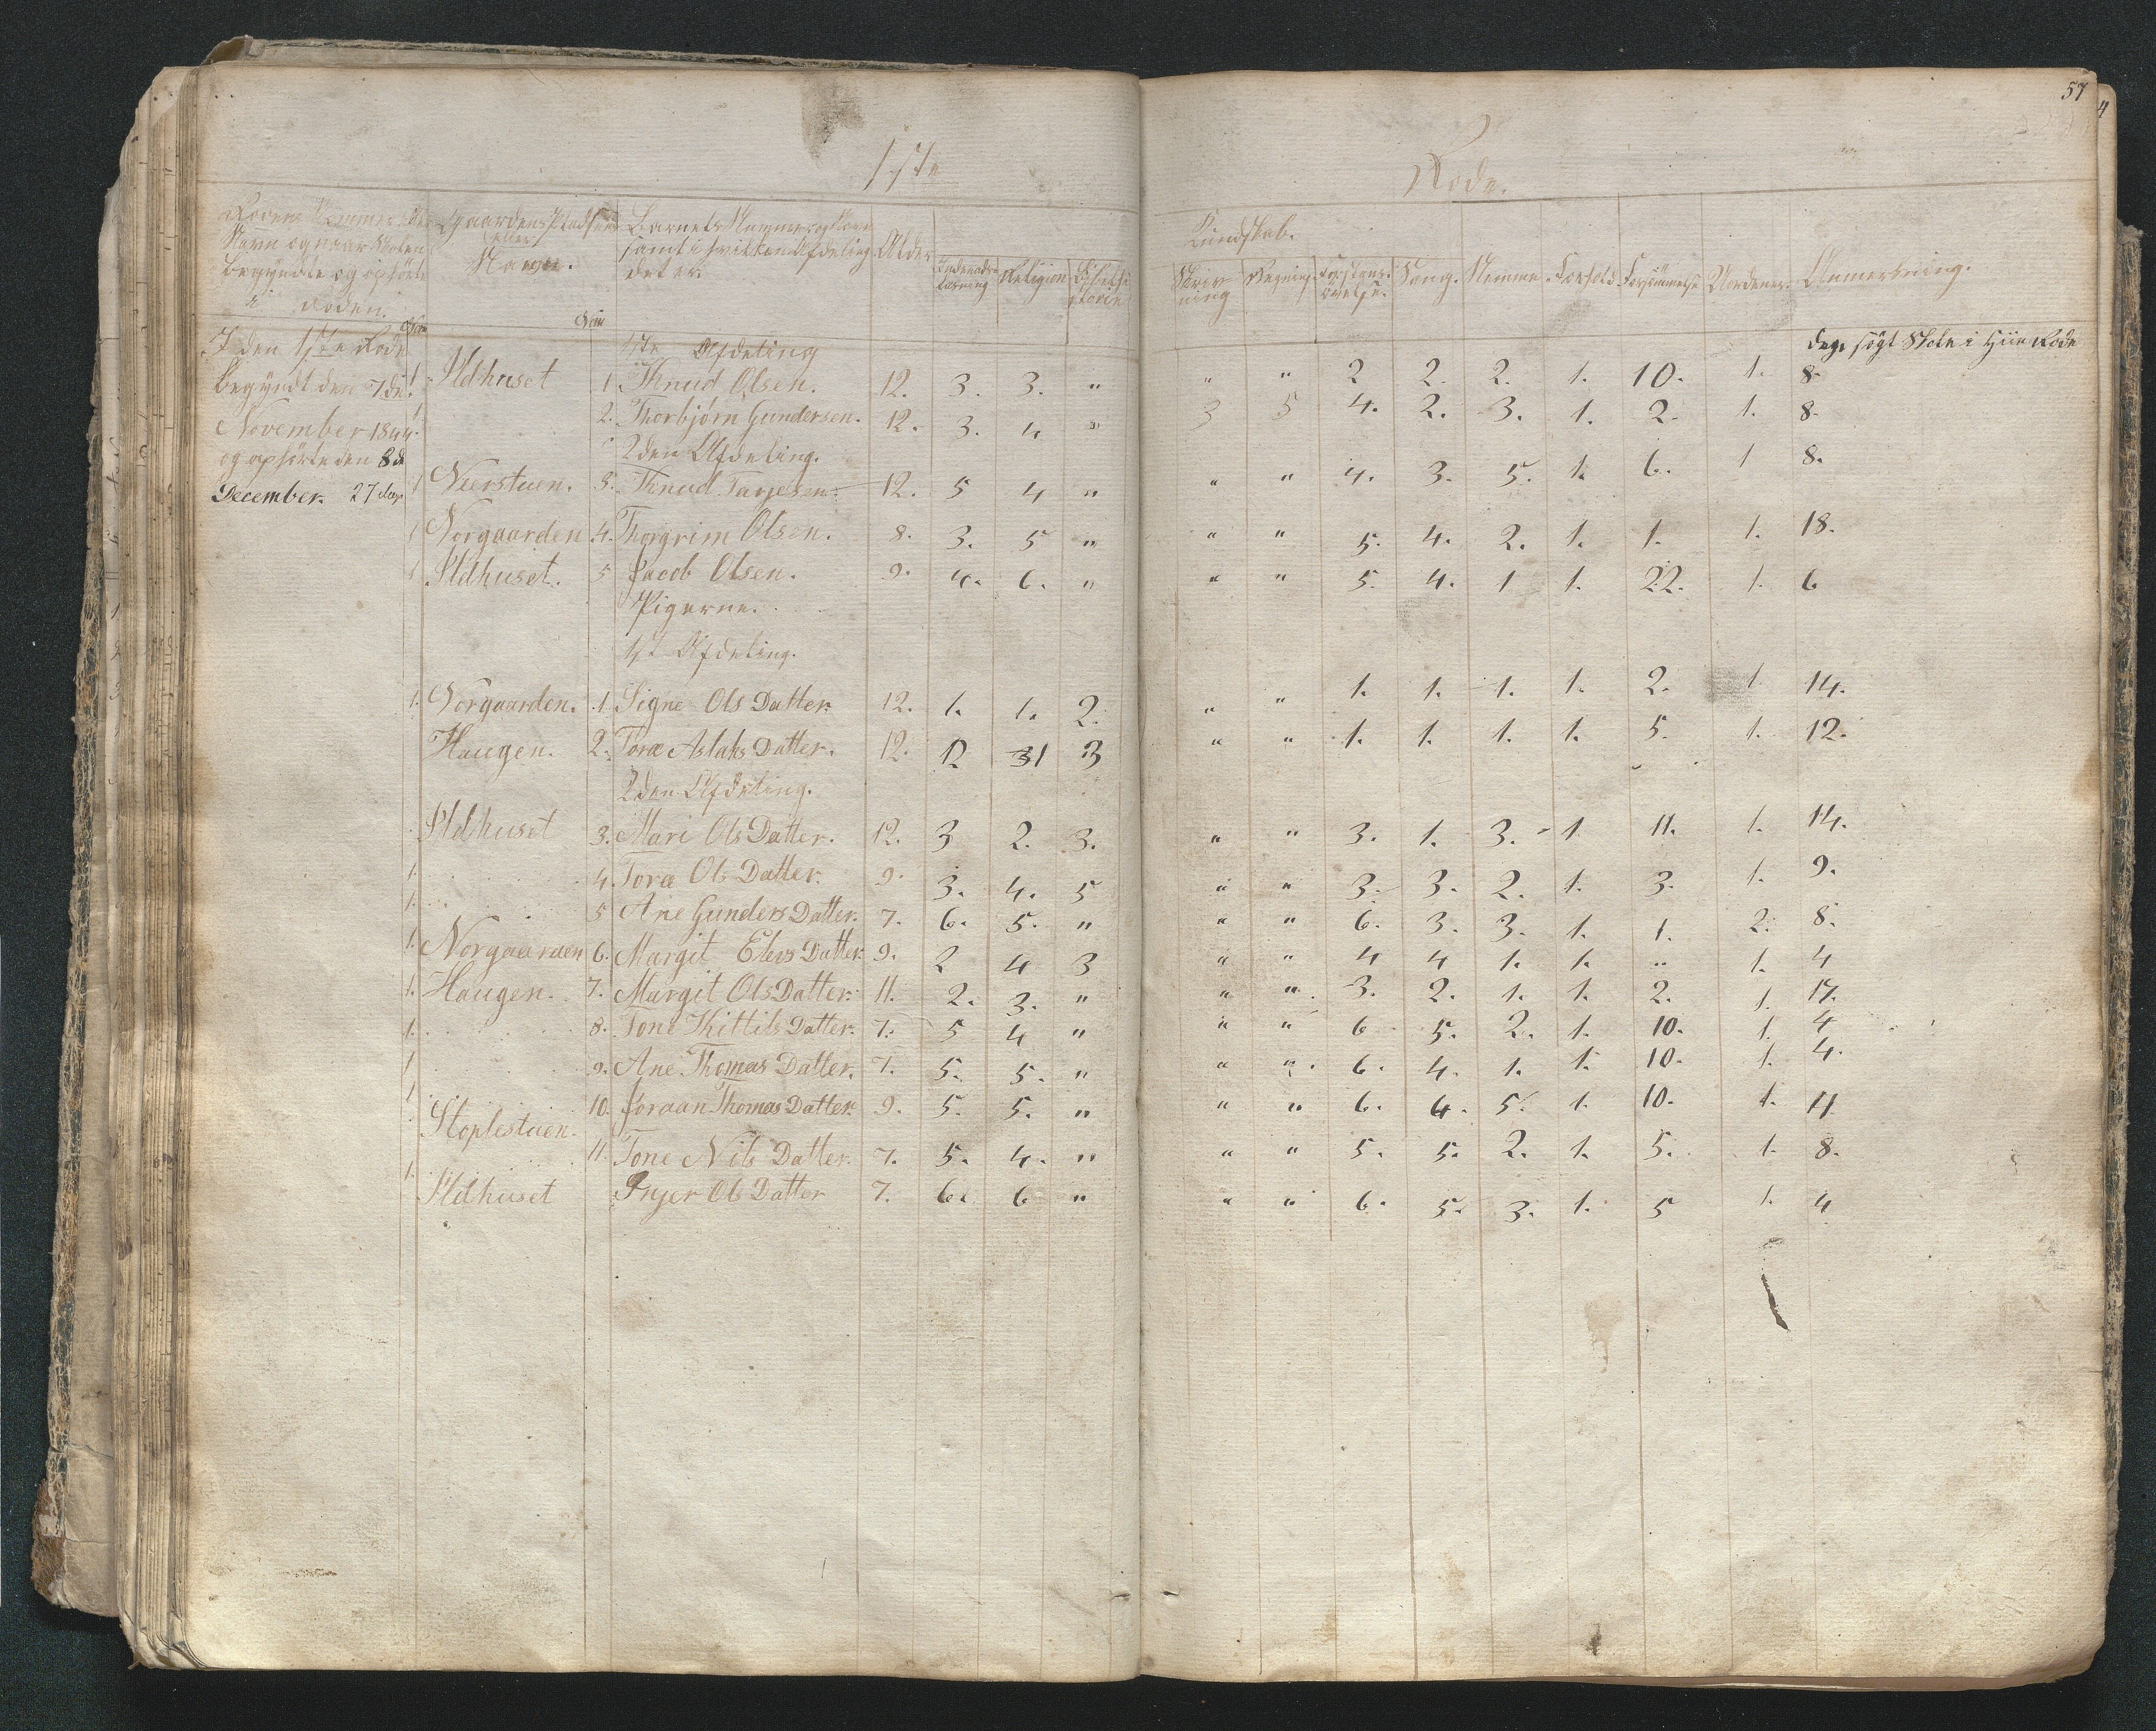 57
1ste Rode.
Rodens Nummer eller Navn og naar Skolen begyndte og ophørte i Roden. Gaardens Pladsens eller Navn. Barnets Nummer og Navn samt i hvilken Afdeling det er. Alder Indenadslæsning Religion Bibelhistorie
Kundskab.
Skrivning Regning Forstandsøvelse. Sang. Nemme Forhold Forsømmelse Uordener Anmerkning.
I den 1ste Rode
begyndt den 7de
November 1844
og ophørte den 8de
December. 27 dage
dage søgt Skole i Hiin Rode
1ste Afdeling
1 Ildhuset 1. Knud Olsen. 12. 3. 3. " " " 2 2. 2. 1. 10. 1. 8.
1. 2. Thorbjörn Gundersen. 12. 3. 4 " 3 5 4. 2. 3. 1. 2. 1. 8.
2den Afdeling.
1 Neerstuen. 3. Knud Tarjesen. 12. 5 4 " " " 4. 3. 5. 1. 6. 1 8.
1 Norgaarden 4. Thorgrim Olsen. 8. 3. 5 " " " 5. 4. 2. 1. 1. 1. 18.
1 Ildhuset. 5 Jacob Olsen. 9. 4. 6. " " " 5. 4. 1 1. 22. 1. 6
Pigerne.
1ste Afdeling.
1. Norgaarden. 1. Signe Ols Datter. 12. 1. 1. 2. " " 1. 1. 1. 1. 2. 1 14.
Haugen. 2. Tora Aslaks Datter. 12. 12 31 3 " " 1. 1. 1. 1. 5. 1. 12.
2den Afdeling.
Ildhuset 3. Mari Ols Datter. 12. 3 2. 3. " " 3. 1. 3. 1 11. 1. 14.
1. 4. Tora Ols Datter. 9. 3. 4. 5 " " 3. 3. 2. 1. 3. 1. 9.
1. 5 Ane Gunders Datter. 7. 6. 5. " " " 6. 3. 3. 1. 1. 2. 8.
1. Norgaarden 6. Margit Elevs Datter 9. 2 4 3 " " 4 4 1. 1. " 1. 4
1. Haugen. 7. Margit Ols Datter. 11. 2. 3. " " " 3. 2. 1. 1. 2. 1. 17.
1. 8. Tone Kittils Datter. 7. 5 4 " " " 6 5. 2. 1. 10. 1. 4
1 9. Ane Thomas Datter. 7. 5. 5. " " " 6. 4. 1. 1. 10. 1. 4.
1 10. Joraan Thomas Datter 9. 5. 5. " " " 6. 4. 5. 1. 10. 1. 4
Stoplestuen. 11. Tone Nils Datter. 7. 5. 4. " " " 5. 5. 2. 1. 5. 1. 8.
1. Ildhuset Inger Ols Datter 7. 6. 6 " " " 6. 5. 3. 1. 5 1. 4